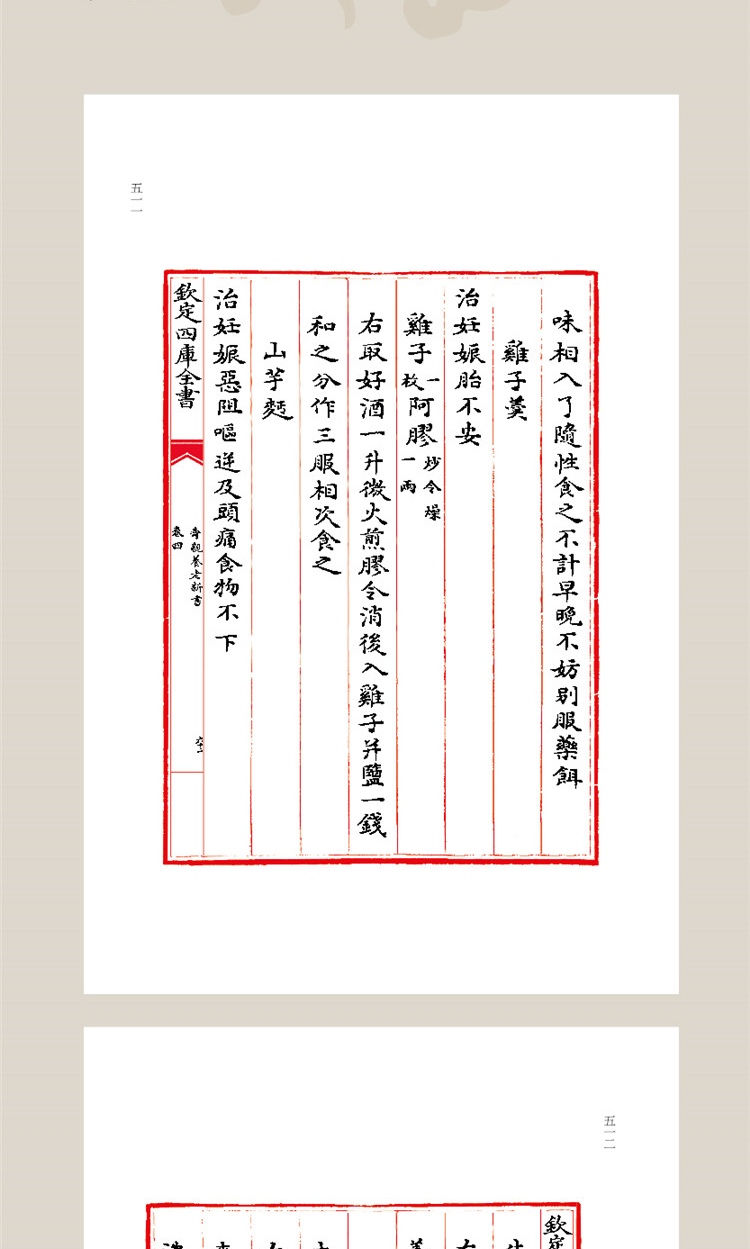 五一一
味相入了隨性食之不計早晚不妨别服藥餌
雞子羹
治妊娠胎不安
雞子一枚阿膠一兩炒令燥
右取好酒一升微火煎膠令消後入雞子并鹽一錢
和之分作三服相次食之
山芋麪
治妊娠惡阻嘔逆及頭痛食物不下
欽定四庫全書
壽親養老新書
卷四
五一二
欽定